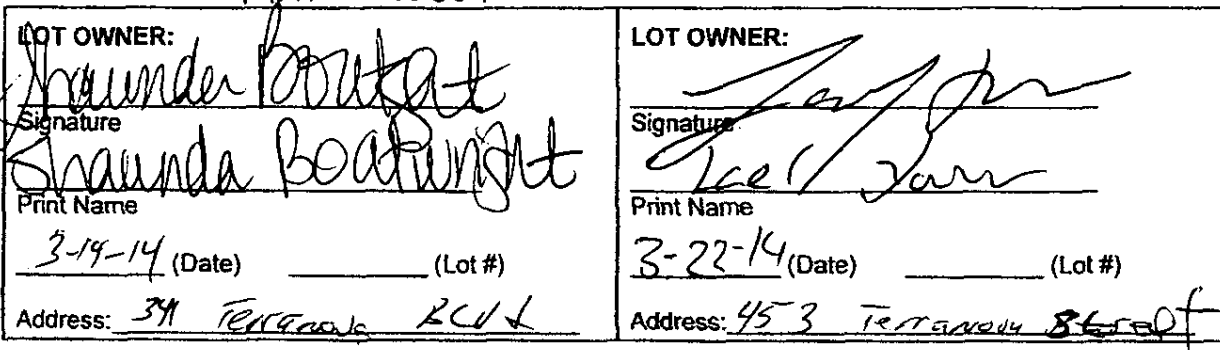 LOT OWNER:
Shaunda Boatwright
Signature
Shaunda Boatwright
Print Name
3-14-14 (Date) (Lot #)
Address: 341 Terranova BLVD
LOT OWNER:
Signature
Print Name
3-22-14 (Date) (Lot #)
Address: 453 Terranova